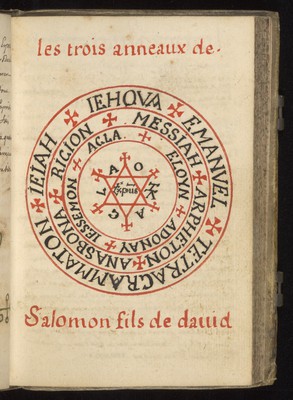 les trois anneaux de
✠ IEHOVA ✠ EMANVEL ✠ TETRAGRAMMATON ✠ IEIAH
✠ MESSIAH ✠ ARPHETON ✠ ANASBONA ✠ RIGION
✠ AGLA ✠ ELOYN ✠ ADONAY ✠ IESSEMON
A G L A
Salomon fils de dauid